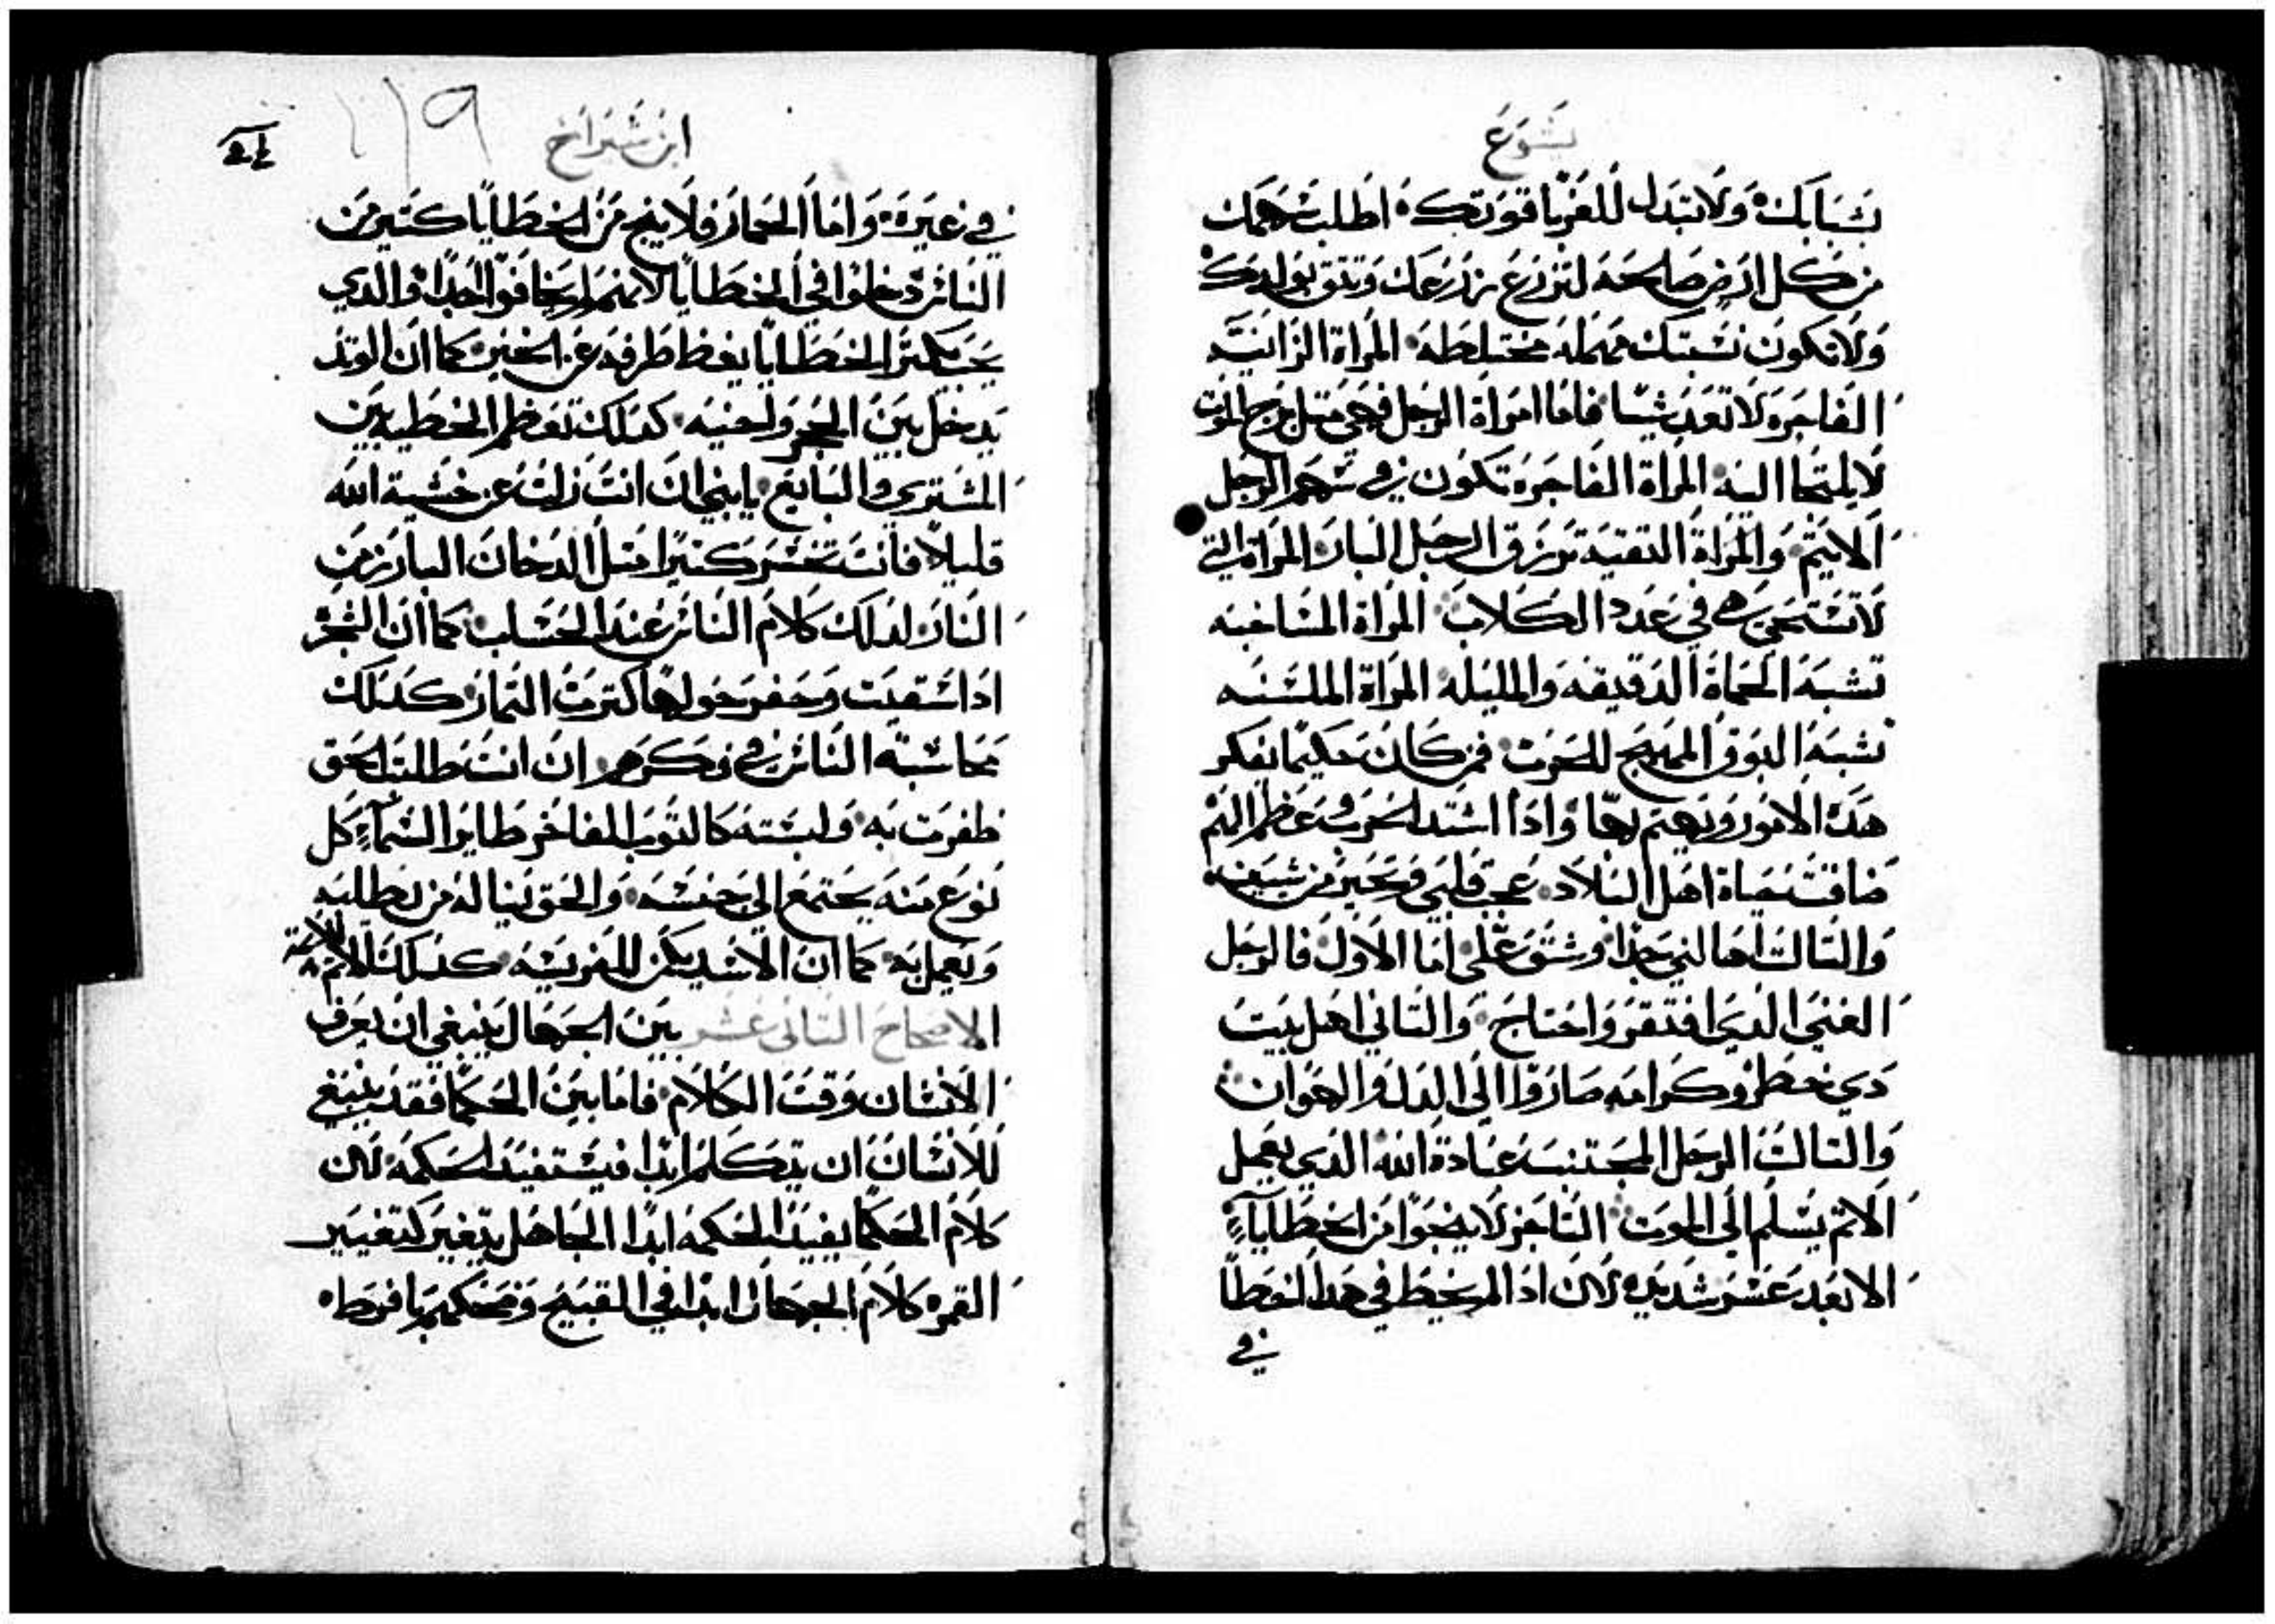 يشوع
شبابك ولا تبدل للغربا قوتك اطلب سهمك
من كل ارض صالحه لتزرع بزرعك وتتق بولدك
ولا تكون نسبتك مهمله مختلطه المراة الزانيه
الفاجره لا تعد شيا فاما امراة الرجل فهي متل برج الموت
لا يلتجا اليه المراة الفاجره تكون في سهم الرجل
الاتيم والمراة التقيه ترزق الرجل البار المراة التي
لا تستحي هي في عدد الكلاب المراة المساخبه
تشبه الحماة الدقيقه والمليله المراة الملسنه
تشبه البوق المهيج للحرب فمن كان حكيما يفكر
هده الامور ويهتم بها وادا اشتد الحرب وعظم الهم
ضاقت حياة اهل البلاد عجب قلبي وتحير من شيين
والتالت اهالني جدا وشق علي اما الاول فالرجل
الغني الدي افتقر واحتاج والتاني اهل بيت
دي خطر وكرامه صاروا الي الدل والهوان
والتالت الرجل المجتنب عبادة الله الدي يعمل
الاتم يسلم الي الموت التاجر لا ينجوا من الخطايا
الا بعد عسر شديد لان ادا لم يخط في هدا الخطا
في
ابن شيراخ
١١٩
في غيره واما الخمار فلا ينج من الخطايا كتير من
الناس دخلوا في الخطايا لانهم لم يخافوا الله والدي
يحب يكتر الخطايا يغط طرفه عن الحنين كما ان الوتد
يدخل بين الحجر ولحنيه كدلك تعظم الخطيه بين
المشتري والبايع يابني ان انت زلت عن خشية الله
قليلا فانت تخسر كتيرا متل الدخان البارز من
النار لدلك كلام الناس عند الحساب كما ان الشجر
ادا سقيت وحفر حولها كترت التمار كدلك
محاسبة الناس في فكرهم ان انت طلبت الحق
ظفرت به ولبسته كالتوب الفاخر طاير السماء كل
نوع منه يجتمع الي جنسه والحق يناله من يطلبه
ويعمل به كما ان الاسد يكمن للفريسه كدلك الاتم للاتمة
الاصحاح التاني عشر بين الجهال ينبغي ان يعرف
الانسان وقت الكلام فاما بين الحكما فقد ينبغي
للانسان ان يتكلم ابدا فيستفيد الحكمه لان
كلام الحكما يفيد الحكمه ابدا الجاهل يتغير كتغيير
القمر كلام الجهال ابدا في القبيح وضحكهم بافرطه